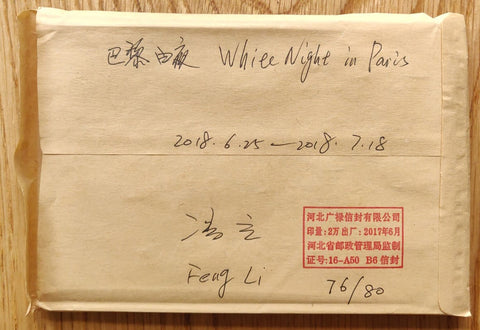 巴黎白夜 White Night in Paris
2018.6.25—2018.7.18
冯立
Feng Li
河北广禄信封有限公司
印量:2万 出厂:2017年6月
河北省邮政管理局监制
证号:16-A50 B6信封
76/80